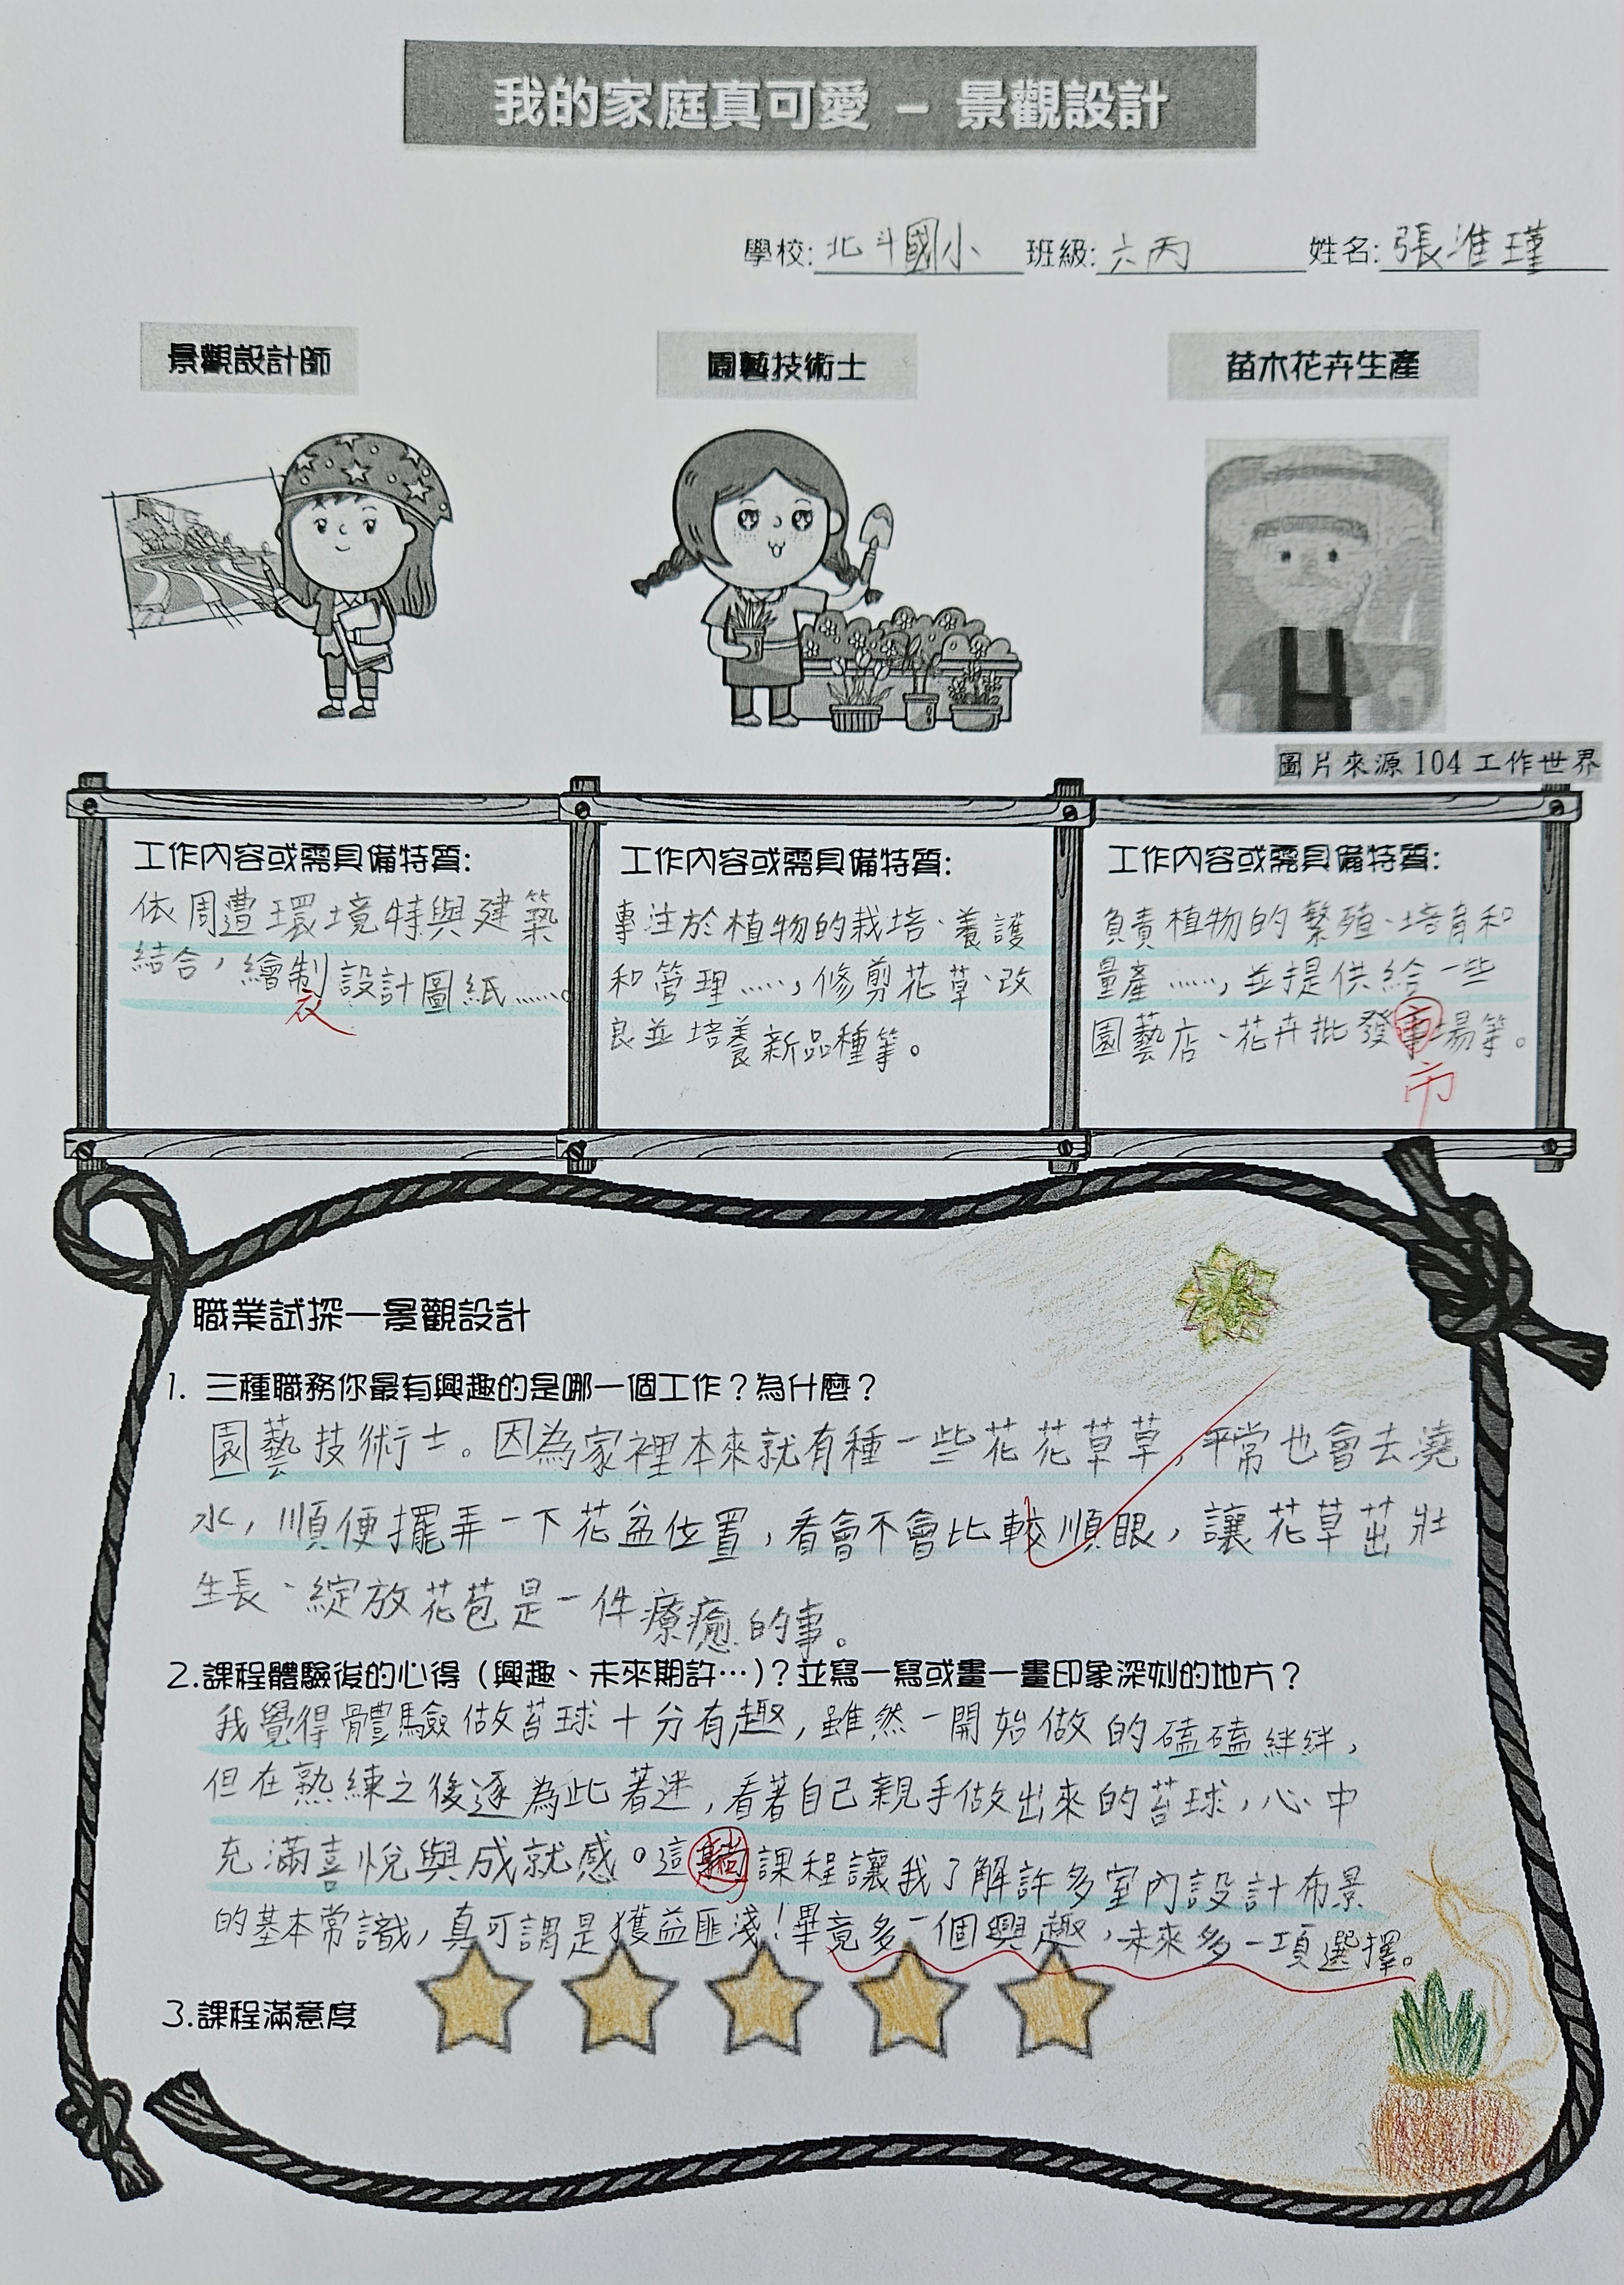 我的家庭真可愛 – 景觀設計
學校: 北斗國小 班級: 六丙 姓名: 張淮瑾
景觀設計師 園藝技術士 苗木花卉生產
圖片來源 104 工作世界
工作內容或需具備特質:
依周遭環境特與建築
結合，繪制設計圖紙……。
衣
工作內容或需具備特質:
專注於植物的栽培、養護
和管理……，修剪花草、改
良並培養新品種等。
工作內容或需具備特質:
負責植物的繁殖、培育和
量產……，並提供給一些
園藝店、花卉批發場等。
市
職業試探—景觀設計
1. 三種職務你最有興趣的是哪一個工作？為什麼？
園藝技術士。因為家裡本來就有種一些花花草草，平常也會去澆
水，順便擺弄一下花盆位置，看會不會比較順眼，讓花草茁壯
生長、綻放花苞是一件療癒的事。
2.課程體驗後的心得（興趣、未來期許…）？並寫一寫或畫一畫印象深刻的地方？
我覺得體驗做苔球十分有趣，雖然一開始做的磕磕絆絆，
但在熟練之後逐為此著迷，看著自己親手做出來的苔球，心中
充滿喜悅與成就感。這趟課程讓我了解許多室內設計布景
的基本常識，真可謂是獲益匪淺！畢竟多一個興趣，未來多一項選擇。
3.課程滿意度